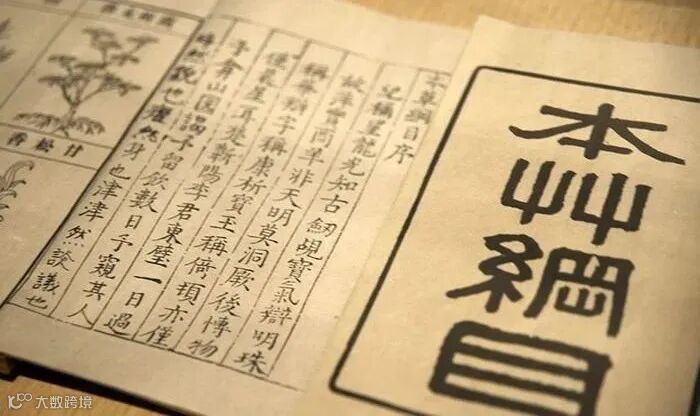 本艸綱目
草綱目序
稱望龍光知古劍覘寶氣辯明珠
故萍實商羊非天明莫洞厥後博物
稱華辯字稱康析寶玉稱倚頓亦僅
僅晨星耳楚蘄陽李君東璧一日過
予弇山園謁予留飲數日予窺其人
睟然貌也癯然身也津津然談議也
甘松香
大数跨境